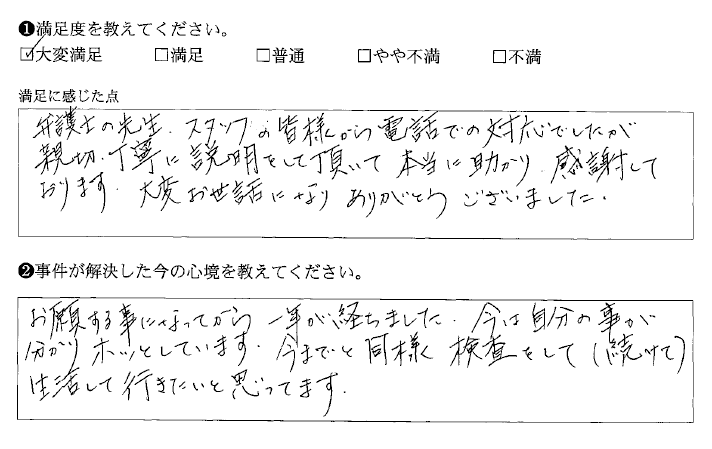 ❶満足度を教えてください。
☑大変満足 □満足 □普通 □やや不満 □不満
満足に感じた点
弁護士の先生、スタッフの皆様から電話での対応でしたが
親切、丁寧に説明をして頂いて本当に助かり、感謝して
おります。大変お世話になりありがとうございました。
❷事件が解決した今の心境を教えてください。
お願する事になってから一年が経ちました。今は自分の事が
分かりホッとしています。今までと同様検査をして(続けて)
生活して行きたいと思ってます。